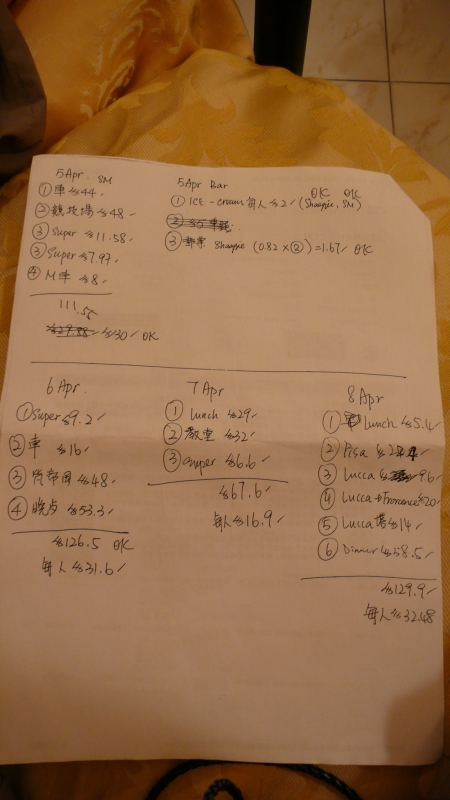 5 Apr. SM
① 車 €44
② 競技場 €48
③ Super €11.58
③ Super €7.97
④ M車 €8
111.55
€30 OK
5 Apr Bar
OK OK
① ICE-cream 每人 €2 (Shaqpie, SM)
③ Shaqpie (0.82 × ②) = 1.67 OK
6 Apr.
① Super €9.2
② 車 €16
③ €48
④ 晚点 €53.3
€126.5 OK
每人 €31.6
7 Apr
① Lunch €29
② 教堂 €32
③ super €6.6
€67.6
每人 €16.9
8 Apr
① Lunch €5.4
② Pisa
③ Lucca 9.6
④ Lucca→ €20
⑤ Lucca 塔 €14
⑥ Dinner 8.5
€129.9
每人 €32.48